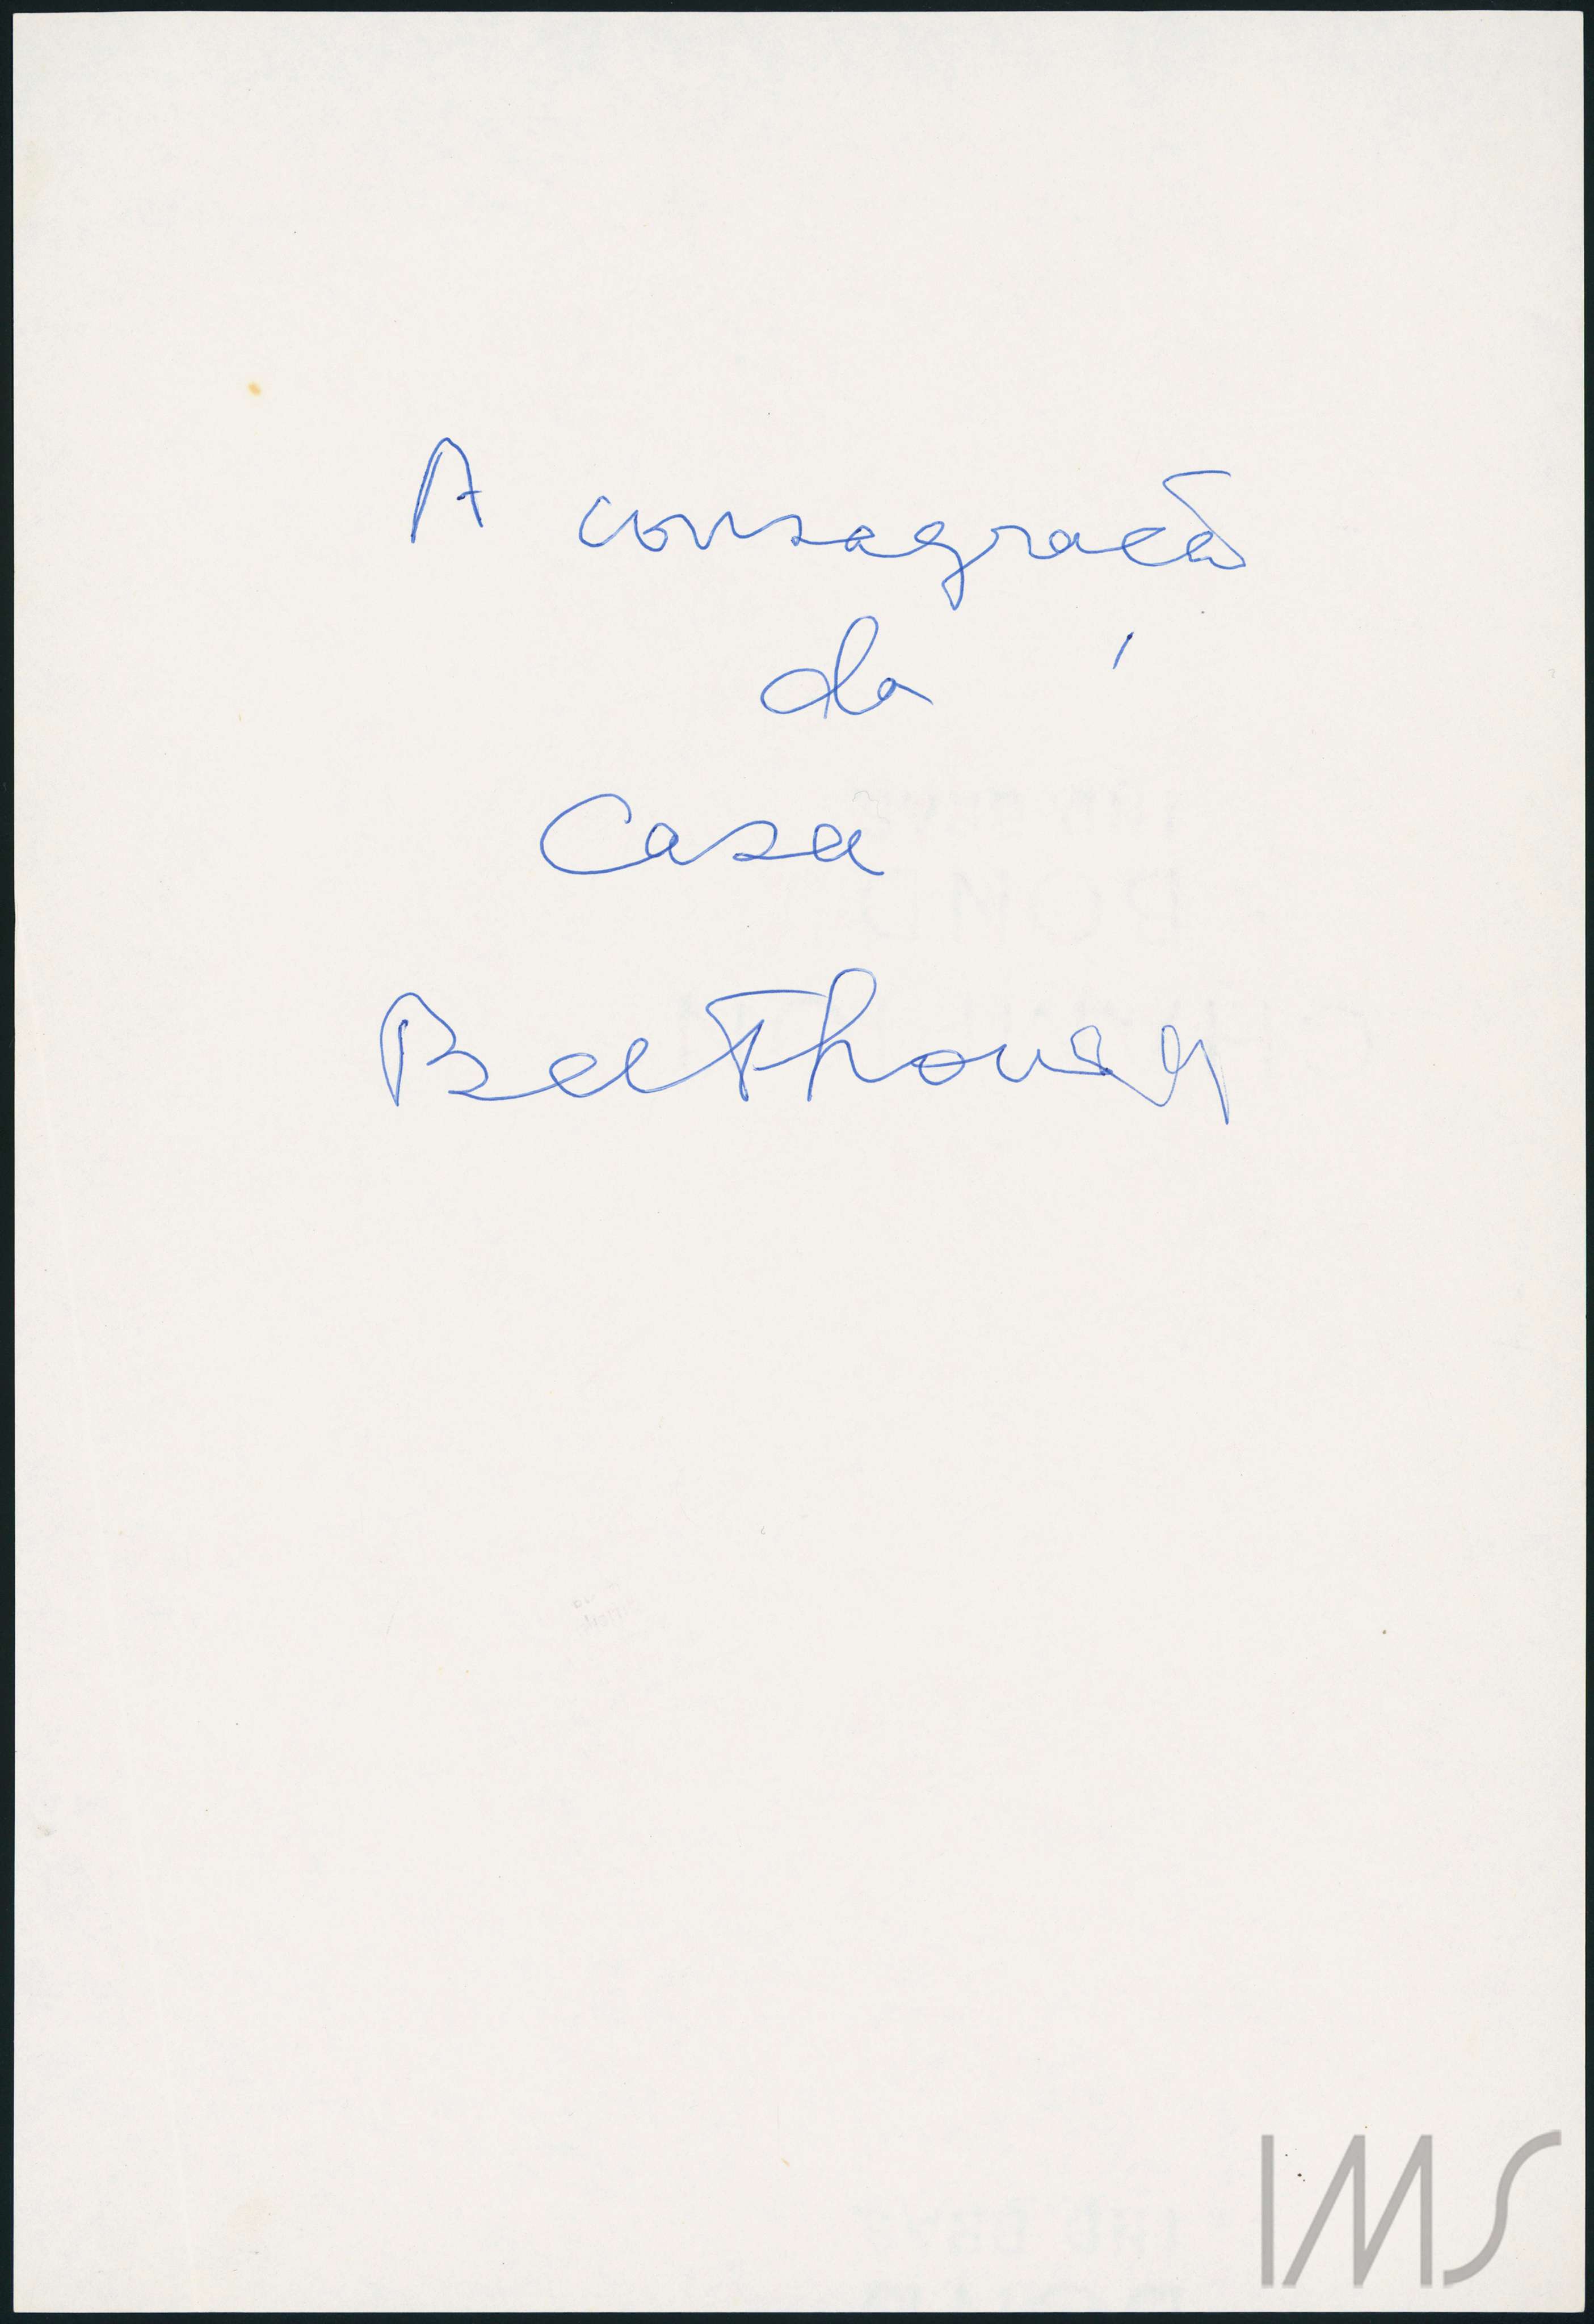 A consagração
da
Casa
Beethoven
IMS